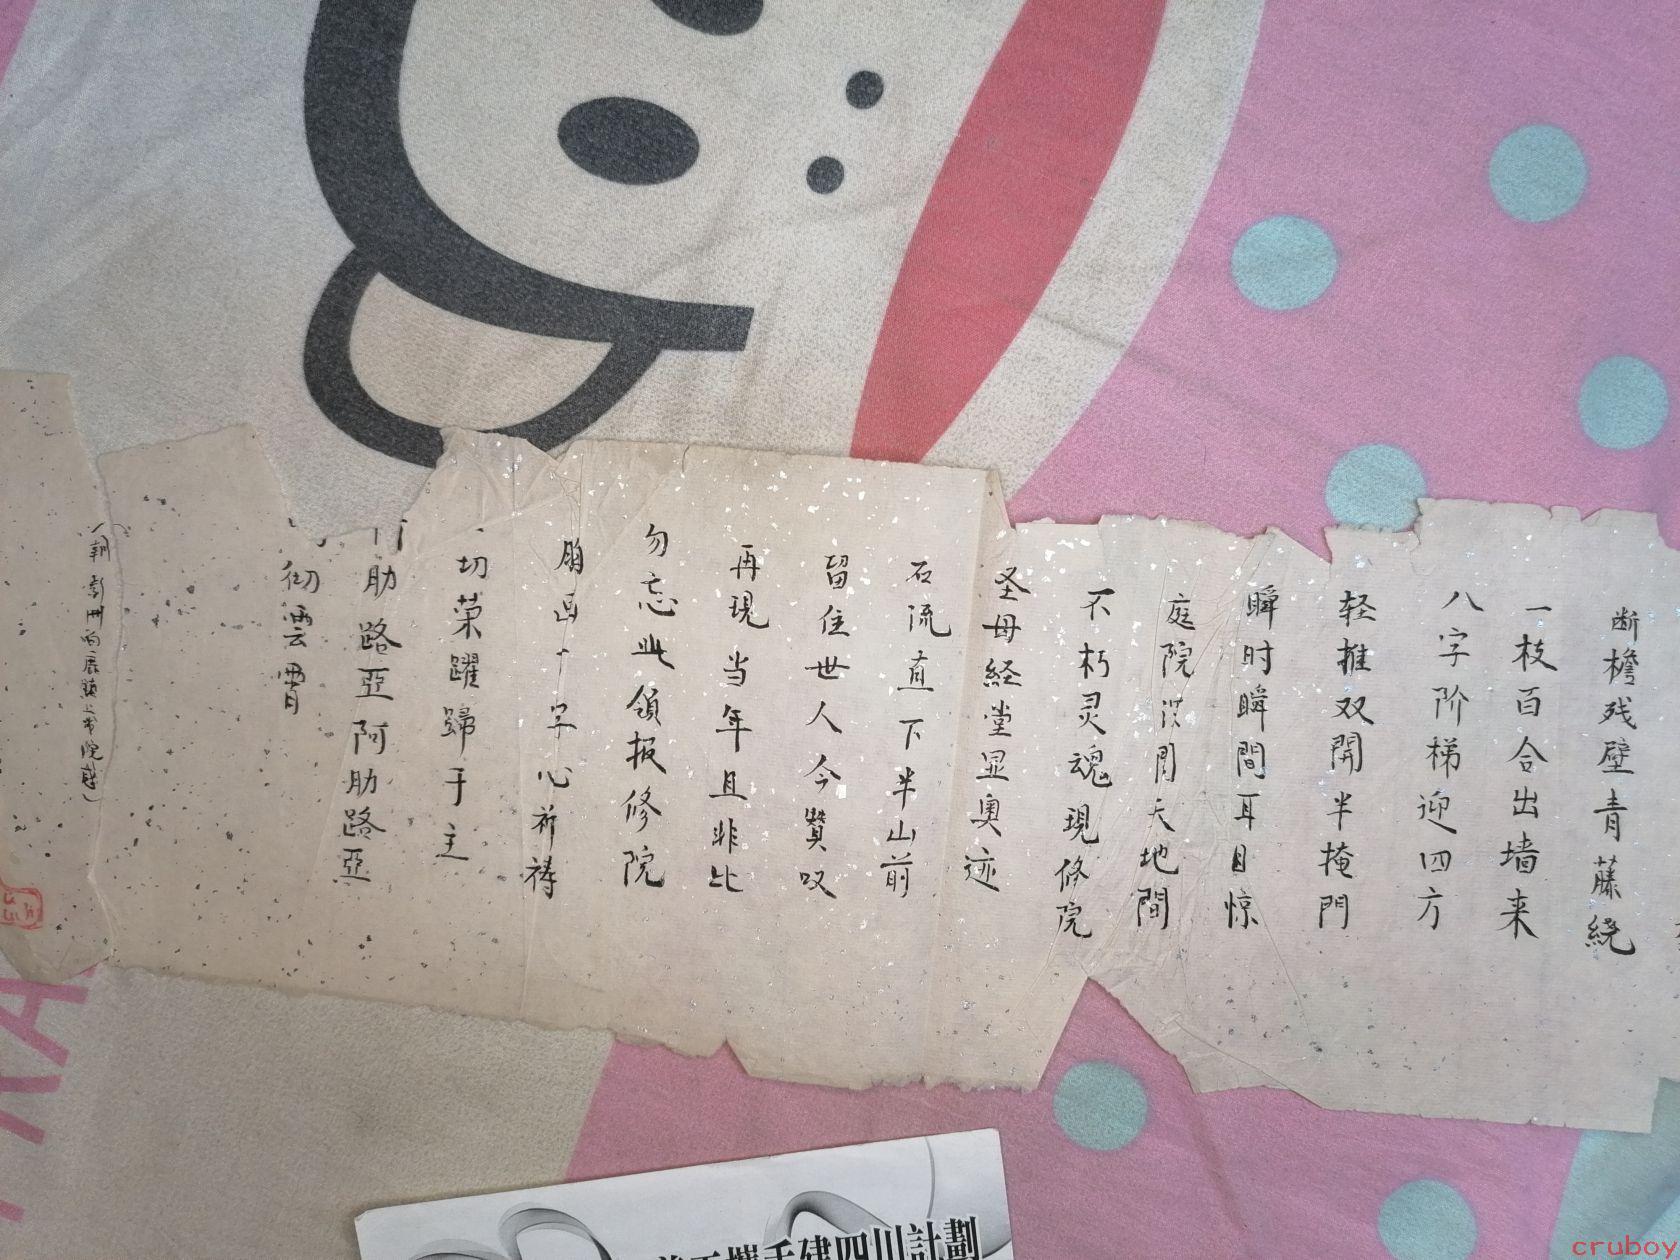 断檐残壁青藤绕
一枝百合出墙来
八字阶梯迎四方
轻推双開半掩門
瞬时瞬間耳目惊
庭院 天地間
不朽灵魂現修院
圣母経堂显奥迹
石流直下半山前
留住世人今贊叹
再現当年且非比
勿忘此領报修院
胸画十字心祈祷
切荣躍歸于主
肋路亞阿肋路亞
彻雲霄
建四川計劃
cruboy